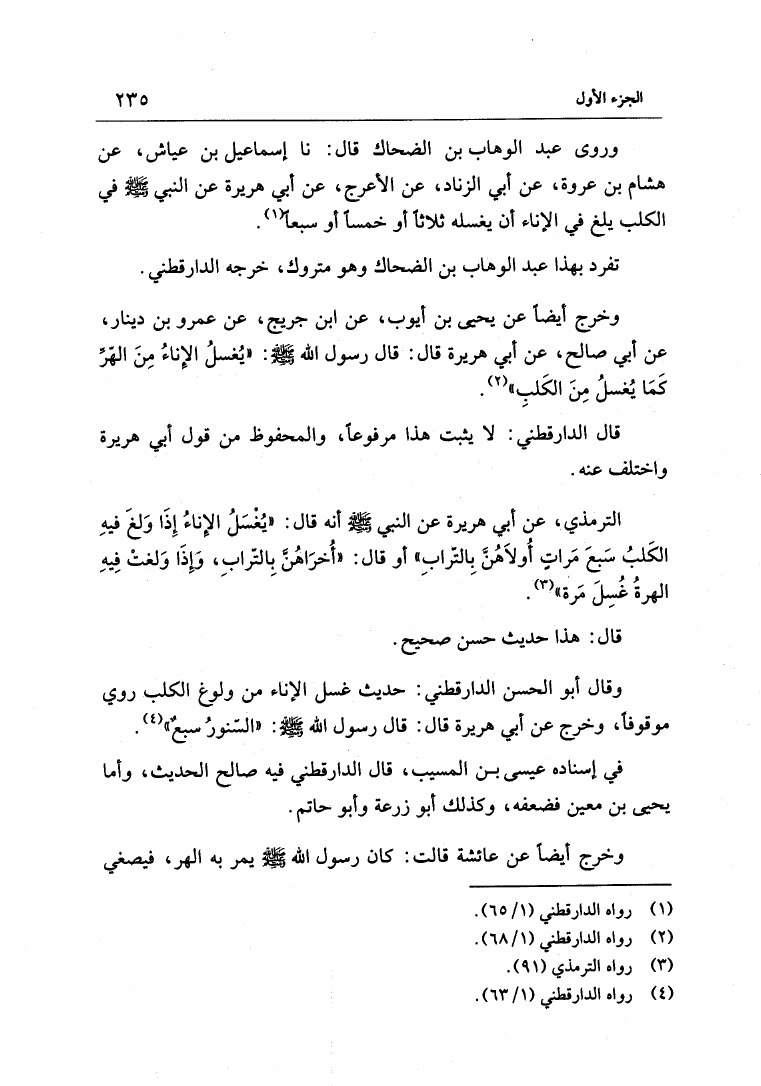 الجزء الأول ٢٣٥
وروى عبد الوهاب بن الضحاك قال: نا إسماعيل بن عياش، عن
هشام بن عروة، عن أبي الزناد، عن الأعرج، عن أبي هريرة عن النبي ﷺ في
الكلب يلغ في الإناء أن يغسله ثلاثاً أو خمساً أو سبعاً(١).
تفرد بهذا عبد الوهاب بن الضحاك وهو متروك، خرجه الدارقطني.
وخرج أيضاً عن يحيى بن أيوب، عن ابن جريج، عن عمرو بن دينار،
عن أبي صالح، عن أبي هريرة قال: قال رسول الله ﷺ: «يُغسلُ الإناءُ مِنَ الهّرِّ
كَمَا يُغسلُ مِنَ الكَلبِ»(٢).
قال الدارقطني: لا يثبت هذا مرفوعاً، والمحفوظ من قول أبي هريرة
واختلف عنه.
الترمذي، عن أبي هريرة عن النبي ﷺ أنه قال: «يُغْسَلُ الإناءُ إِذَا وَلغَ فيهِ
الكَلبُ سَبعَ مَراتٍ أُولاَهُنَّ بِالتّراب» أو قال: «أُخرَاهُنَّ بِالتّرابِ، وَإِذَا وَلغتْ فِيهِ
الهرةُ غُسِلَ مَرة»(٣).
قال: هذا حديث حسن صحيح.
وقال أبو الحسن الدارقطني: حديث غسل الإناء من ولوغ الكلب روي
موقوفاً، وخرج عن أبي هريرة قال: قال رسول الله ﷺ: «السّنورُ سبعٌ»(٤).
في إسناده عيسى بن المسيب، قال الدارقطني فيه صالح الحديث، وأما
يحيى بن معين فضعفه، وكذلك أبو زرعة وأبو حاتم.
وخرج أيضاً عن عائشة قالت: كان رسول الله ﷺ يمر به الهر، فيصغي
(١) رواه الدارقطني (١/ ٦٥).
(٢) رواه الدارقطني (١/ ٦٨).
(٣) رواه الترمذي (٩١).
(٤) رواه الدارقطني (١/ ٦٣).